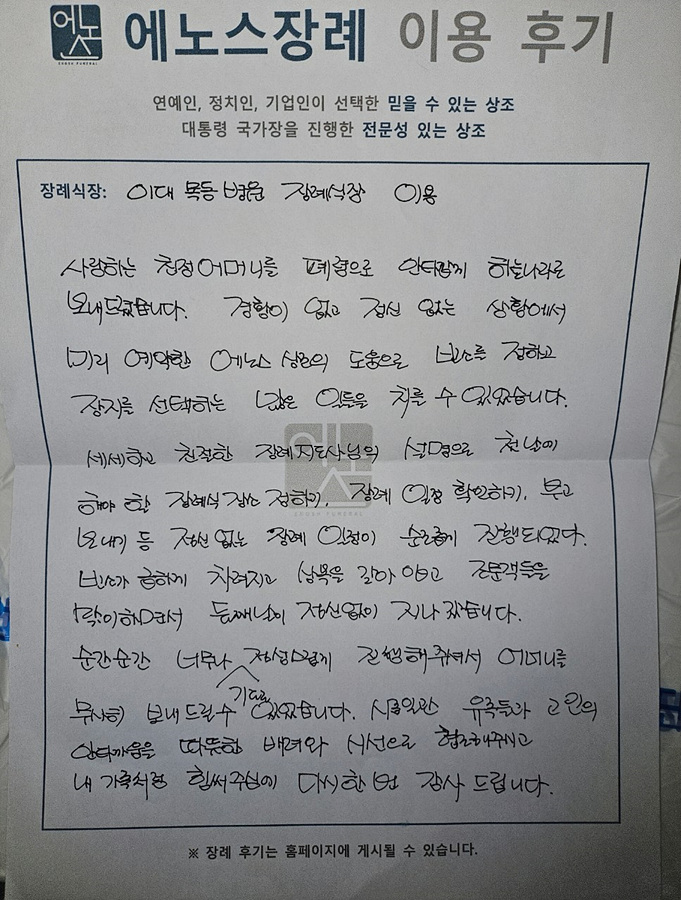 에노스 ENOSH FUNERAL
에노스장례 이용 후기
연예인, 정치인, 기업인이 선택한 믿을 수 있는 상조
대통령 국가장을 진행한 전문성 있는 상조
장례식장: 이대 목동 병원 장례식장 이용
사랑하는 친정어머니를 폐렴으로 안타깝게 하늘나라로
보내드렸습니다. 경황이 없고 정신 없는 상황에서
미리 예약한 에노스 상조의 도움으로 빈소를 정하고
장지를 선택하는 많은 일들을 치를 수 있었습니다.
세세하고 친절한 장례지도사님의 설명으로 첫날에
해야 할 장례식 장소 정하기, 장례 일정 확인하기, 부고
보내기 등 정신 없는 장례 일정이 순조롭게 진행되었다.
빈소가 급하게 차려지고 상복을 갈아 입고 조문객들을
맞이하면서 둘째날이 정신없이 지나 갔습니다.
순간순간 너무나 정성스럽게 진행해주셔서 어머니를
기대로
무사히 보내드릴 수 있었습니다. 시종일관 유족들과 고인의
안타까움을 따뜻한 배려와 시선으로 협조해주시고
내 가족처럼 힘써주심에 다시 한 번 감사 드립니다.
※ 장례 후기는 홈페이지에 게시될 수 있습니다.